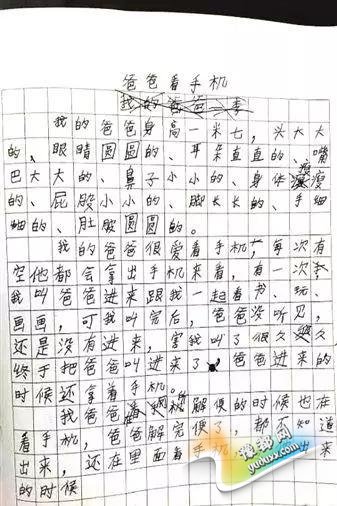 爸爸看手机
我的爸爸一季
我的爸爸身高一米七，头大大
的、眼睛圆圆的、耳朵直直的、嘴
巴大大的、鼻子小小的、身体瘦瘦
的、屁股小小的、脚长长的、手细
细的、肚脸圆圆的。
我的爸爸很爱看手机，每次有
空他都会拿出手机来看，有一次，
我叫爸爸进来跟我一起看书、玩、
画画，可我叫完后，爸爸没听见，
还是没有进来，害我叫了很久
终于把爸爸叫进来了。爸爸进来的
时候还拿着手机。
我爸爸解便的时候也在
看手机，爸爸解完便了，都不知道
出来，还在里面看手机，来
的时候
搜都网
yuduxx.com